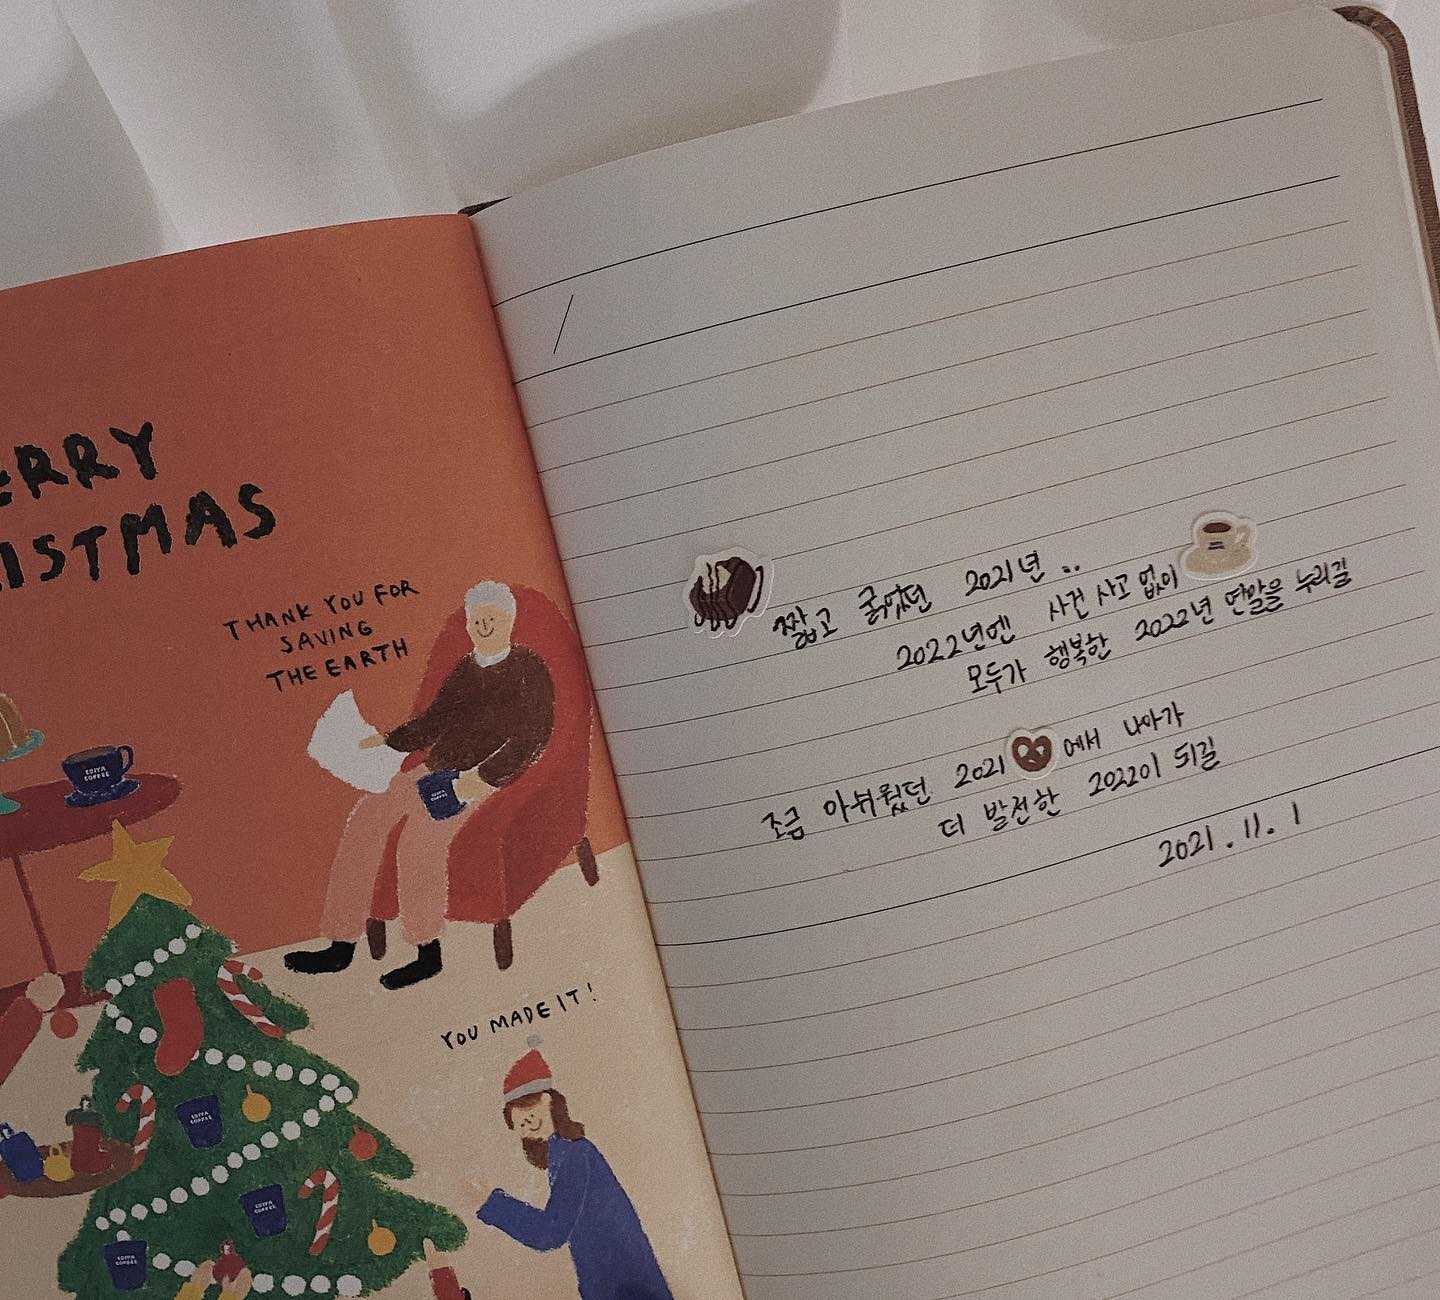 ERRY
ISTMAS
THANK YOU FOR
SAVING
THE EARTH
EDIYA
COFFEE
YOU MADE IT!
EDIYA
COFFEE
EDIYA
COFFEE
EDIYA
COFFEE
짧고 굵었던 2021년..
2022년엔 사건 사고 없이
모두가 행복한 2022년 연말을 누리길
조금 아쉬웠던 2021에서 나아가
더 발전한 2022이 되길
2021.11.1